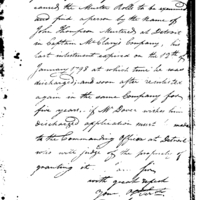 caused the Muster Rolls to be examined
and find a person by the name of
John Thompson Mustered at Detroit
in Captain McClary's Company, his
last inlistment expired on the 13th of
January 1798 at which time he was
discharged, and soon after reinlisted
again in the same Company for
five years, if Mr Dover wishes him
discharged application must be made
to the Commanding Officer at Detroit
who will judge of the propriety of
granting it
I am Sir
with great respect
Your